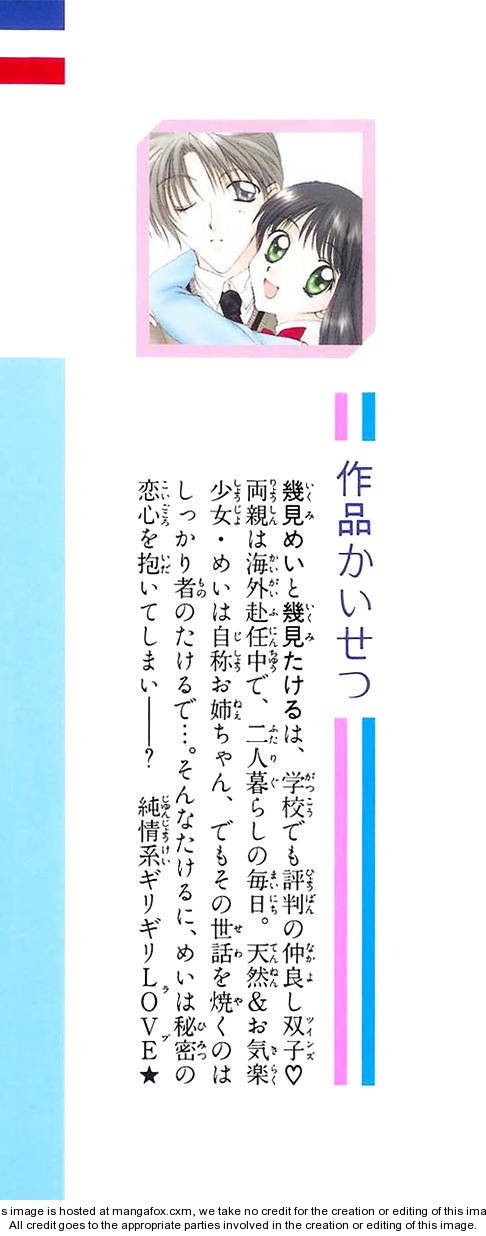 作品かいせつ
幾見めいと幾見たけるは、学校でも評判の仲良し双子♡
両親は海外赴任中で、二人暮らしの毎日。天然&お気楽
少女・めいは自称お姉ちゃん、でもその世話を焼くのは
しっかり者のたけるで…。そんなたけるに、めいは秘密の
恋心を抱いてしまい――? 純情系ギリギリLOVE★
s image is hosted at mangafox.cxm, we take no credit for the creation or editing of this ima
All credit goes to the appropriate parties involved in the creation or editing of this image.